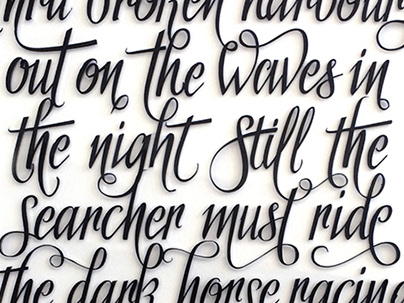 thru broken harbours
out on the waves in
the night Still the
Searcher must ride
the dark horse racing